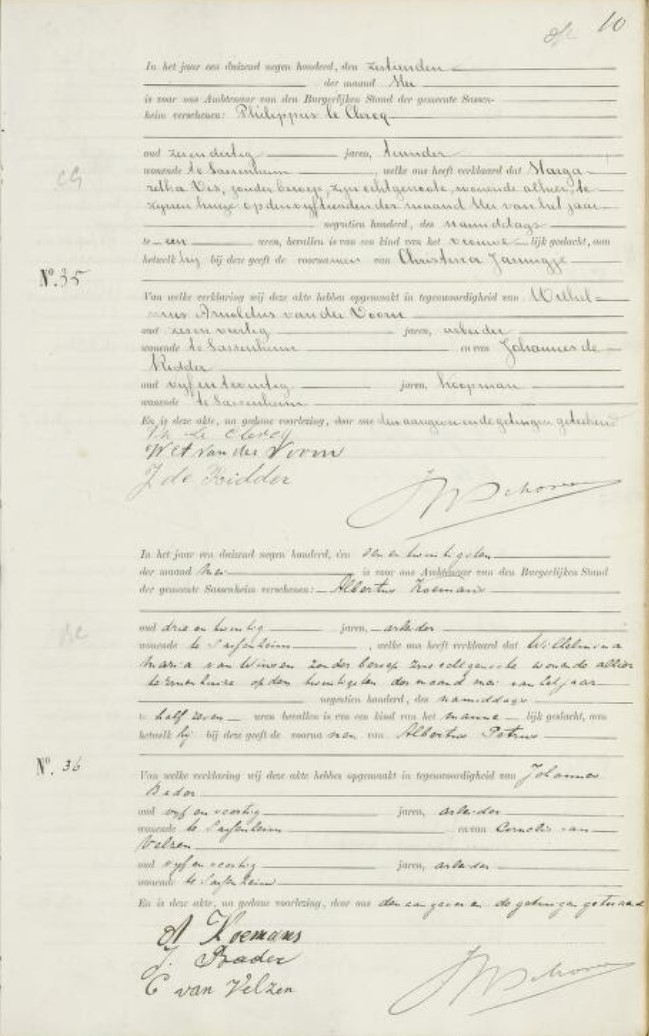 10
In het jaar een duizend negen honderd, den zestienden
der maand Mei
is voor ons Ambtenaar van den Burgerlijken Stand der gemeente Sassen-
heim verschenen: Philippus le Clercq
oud zes en dertig jaren, tuinder
wonende te Sassenheim, welke ons heeft verklaard dat Marga-
retha Vis, zonder beroep, zijn echtgenoote, wonende alhier, te
zijnen huize op den vijftienden der maand Mei van het jaar
negentien honderd, des namiddags
te een uren, bevallen is van een kind van het vrouwe lijk geslacht, aan
hetwelk hij bij deze geeft de voornamen van Christina Jannigje
No. 35
Van welke verklaring wij deze akte hebben opgemaakt in tegenwoordigheid van Wilhel-
mus Arnoldus van der Voorn
oud zes en veertig jaren, arbeider
wonende te Sassenheim en van Johannes de
Ridder
oud vijf en twintig jaren, koopman
wonende te Sassenheim
En is deze akte, na gedane voorlezing, door ons den aangever en de getuigen geteekend
Ph le Clercq
W A van der Voorn
J de Ridder
In het jaar een duizend negen honderd, den een en twintigsten
der maand Mei is voor ons Ambtenaar van den Burgerlijken Stand
der gemeente Sassenheim verschenen: Albertus Koemans
oud drie en twintig jaren, arbeider
wonende te Sassenheim, welke ons heeft verklaard dat Wilhelmina
Maria van Winsen zonder beroep zijne echtgenoote wonende alhier
te zijnen huize op den twintigsten der maand mei van het jaar
negentien honderd, des namiddags
te half zeven uren bevallen is van een kind van het manne lijk geslacht, aan
hetwelk hij bij deze geeft de voorna men van Albertus Petrus
No. 36
Van welke verklaring wij deze akte hebben opgemaakt in tegenwoordigheid van Johannes
Bader
oud vijf en veertig jaren, arbeider
wonende te Sassenheim en van Cornelis van
Velzen
oud vijf en veertig jaren, arbeider
wonende te Sassenheim
En is deze akte, na gedane voorlezing, door ons den aangever en de getuigen geteekend
A Koemans
J. Bader
C van Velzen